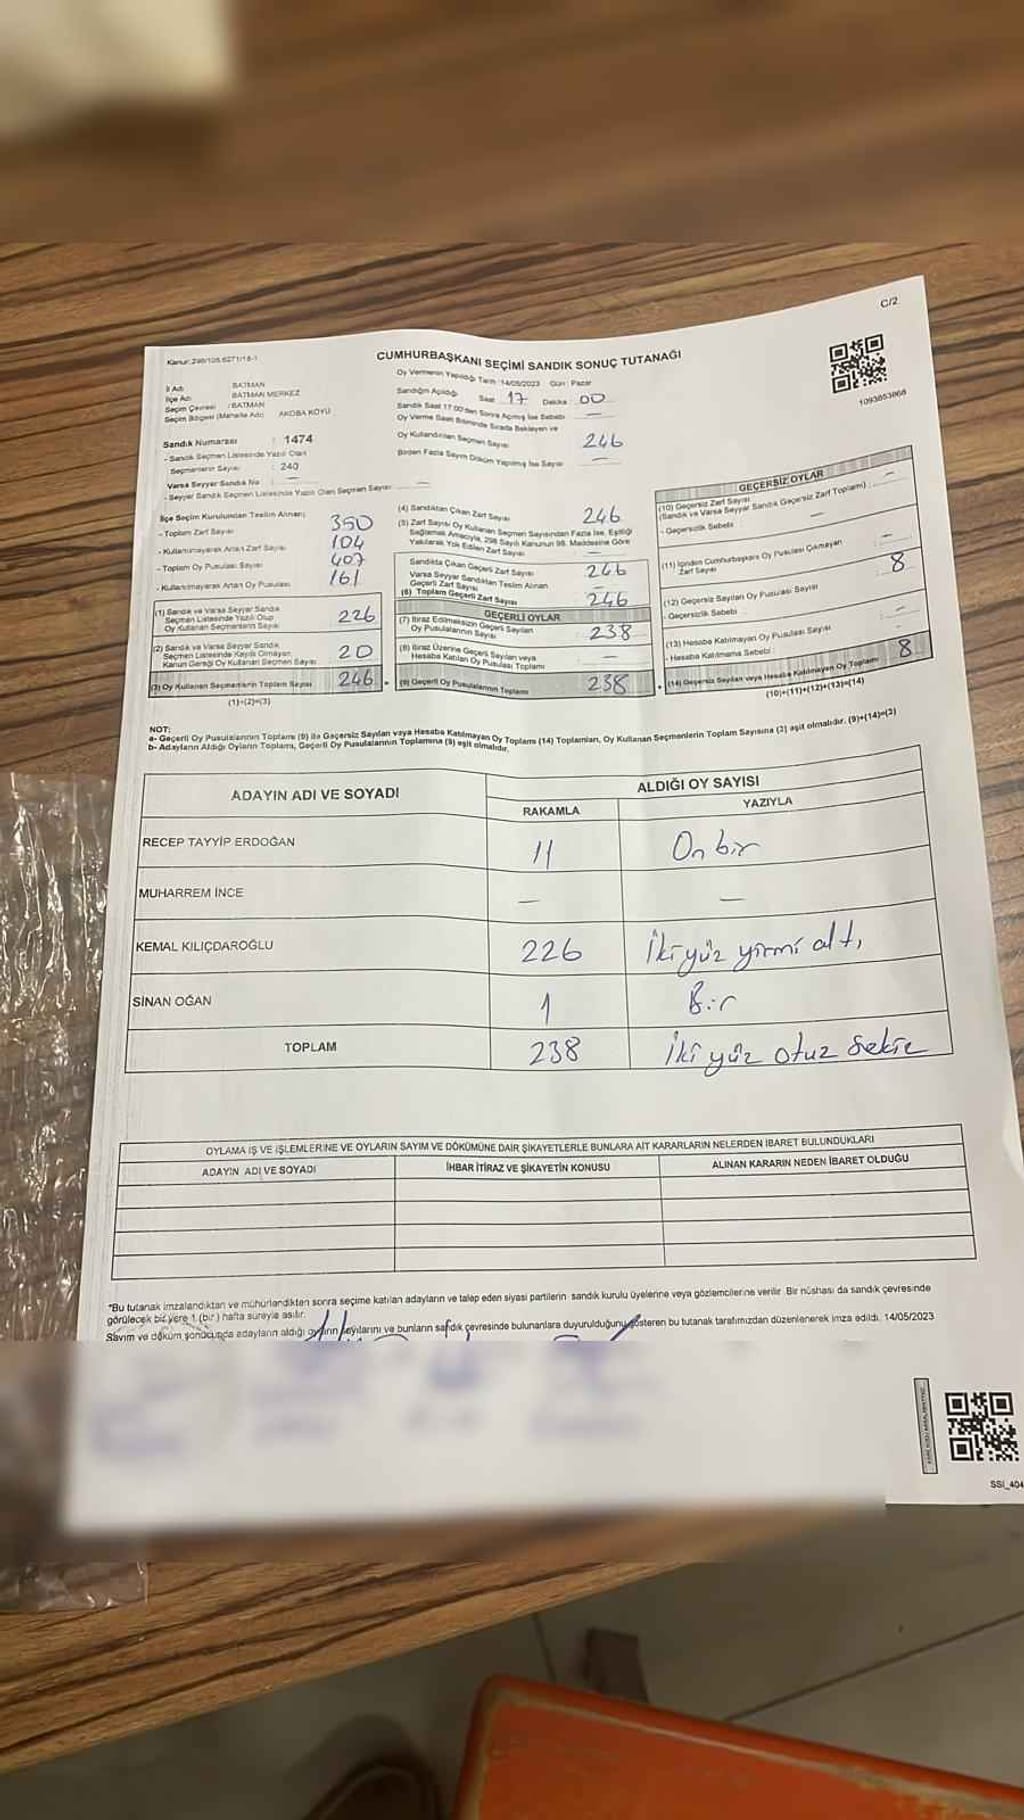 C/2
Kanun: 298/105 6271/18-1
CUMHURBAŞKANI SEÇİMİ SANDIK SONUÇ TUTANAĞI
Oy Vermenin Yapıldığı Tarih :14/05/2023 Gün : Pazar
1093853868
İl Adı : BATMAN
İlçe Adı : BATMAN MERKEZ
Seçim Çevresi : BATMAN
Seçim Bölgesi (Mahalle Adı) : AKOBA KÖYÜ
Sandığın Açıldığı Saat 17 Dakika 00
Sandık Saat 17:00'den Sonra Açılmış İse Sebebi —
Oy Verme Saati Bitiminde Sırada Bekleyen ve
Oy Kullandırılan Seçmen Sayısı 246
Birden Fazla Sayım Döküm Yapılmış İse Sayısı —
Sandık Numarası : 1474
- Sandık Seçmen Listesinde Yazılı Olan
Seçmenlerin Sayısı : 240
Varsa Seyyar Sandık No : —
- Seyyar Sandık Seçmen Listesinde Yazılı Olan Seçmen Sayısı —
İlçe Seçim Kurulundan Teslim Alınan;
- Toplam Zarf Sayısı 350
- Kullanılmayarak Artan Zarf Sayısı 104
- Toplam Oy Pusulası Sayısı 407
- Kullanılmayarak Artan Oy Pusulası 161
(1) Sandık ve Varsa Seyyar Sandık
Seçmen Listesinde Yazılı Olup
Oy Kullanan Seçmenlerin Sayısı 226
(2) Sandık ve Varsa Seyyar Sandık
Seçmen Listesinde Kayıtlı Olmayan,
Kanun Gereği Oy Kullanan Seçmen Sayısı 20
(3) Oy Kullanan Seçmenlerin Toplam Sayısı 246
(1)+(2)=(3)
(4) Sandıktan Çıkan Zarf Sayısı 246
(5) Zarf Sayısı Oy Kullanan Seçmen Sayısından Fazla İse, Eşitliği
Sağlamak Amacıyla, 298 Sayılı Kanunun 98. Maddesine Göre
Yakılarak Yok Edilen Zarf Sayısı —
Sandıkta Çıkan Geçerli Zarf Sayısı 246
Varsa Seyyar Sandıktan Teslim Alınan
Geçerli Zarf Sayısı —
(6) Toplam Geçerli Zarf Sayısı 246
GEÇERLİ OYLAR
(7) İtiraz Edilmeksizin Geçerli Sayılan
Oy Pusulalarının Sayısı 238
(8) İtiraz Üzerine Geçerli Sayılan veya
Hesaba Katılan Oy Pusulası Toplamı
(9) Geçerli Oy Pusulalarının Toplamı 238
GEÇERSİZ OYLAR
(10) Geçersiz Zarf Sayısı
(Sandık ve Varsa Seyyar Sandık Geçersiz Zarf Toplamı) : —
- Geçersizlik Sebebi —
(11) İçinden Cumhurbaşkanı Oy Pusulası Çıkmayan
Zarf Sayısı —
(12) Geçersiz Sayılan Oy Pusulası Sayısı 8
- Geçersizlik Sebebi
(13) Hesaba Katılmayan Oy Pusulası Sayısı —
- Hesaba Katılmama Sebebi : —
(14) Geçersiz Sayılan veya Hesaba Katılmayan Oy Toplamı 8
(10)+(11)+(12)+(13)=(14)
NOT:
a- Geçerli Oy Pusulalarının Toplamı (9) ile Geçersiz Sayılan veya Hesaba Katılmayan Oy Toplamı (14) Toplamları, Oy Kullanan Seçmenlerin Toplam Sayısına (3) eşit olmalıdır. (9)+(14)=(3)
b- Adayların Aldığı Oyların Toplamı, Geçerli Oy Pusulalarının Toplamına (9) eşit olmalıdır.
ADAYIN ADI VE SOYADI
ALDIĞI OY SAYISI
RAKAMLA YAZIYLA
RECEP TAYYİP ERDOĞAN 11 On bir
MUHARREM İNCE — —
KEMAL KILIÇDAROĞLU 226 İki yüz yirmi altı
SİNAN OĞAN 1 Bir
TOPLAM 238 İki yüz otuz sekiz
OYLAMA İŞ VE İŞLEMLERİNE VE OYLARIN SAYIM VE DÖKÜMÜNE DAİR ŞİKAYETLERLE BUNLARA AİT KARARLARIN NELERDEN İBARET BULUNDUKLARI
ADAYIN ADI VE SOYADI İHBAR İTİRAZ VE ŞİKAYETİN KONUSU ALINAN KARARIN NEDEN İBARET OLDUĞU
*Bu tutanak imzalandıktan ve mühürlendikten sonra seçime katılan adayların ve talep eden siyasi partilerin sandık kurulu üyelerine veya gözlemcilerine verilir. Bir nüshası da sandık çevresinde
görülecek bir yere 1 (bir) hafta süreyle asılır.
Sayım ve döküm sonucunda adayların aldığı oyların sayılarını ve bunların sandık çevresinde bulunanlara duyurulduğunu gösteren bu tutanak tarafımızdan düzenlenerek imza edildi. 14/05/2023
SSİ_404